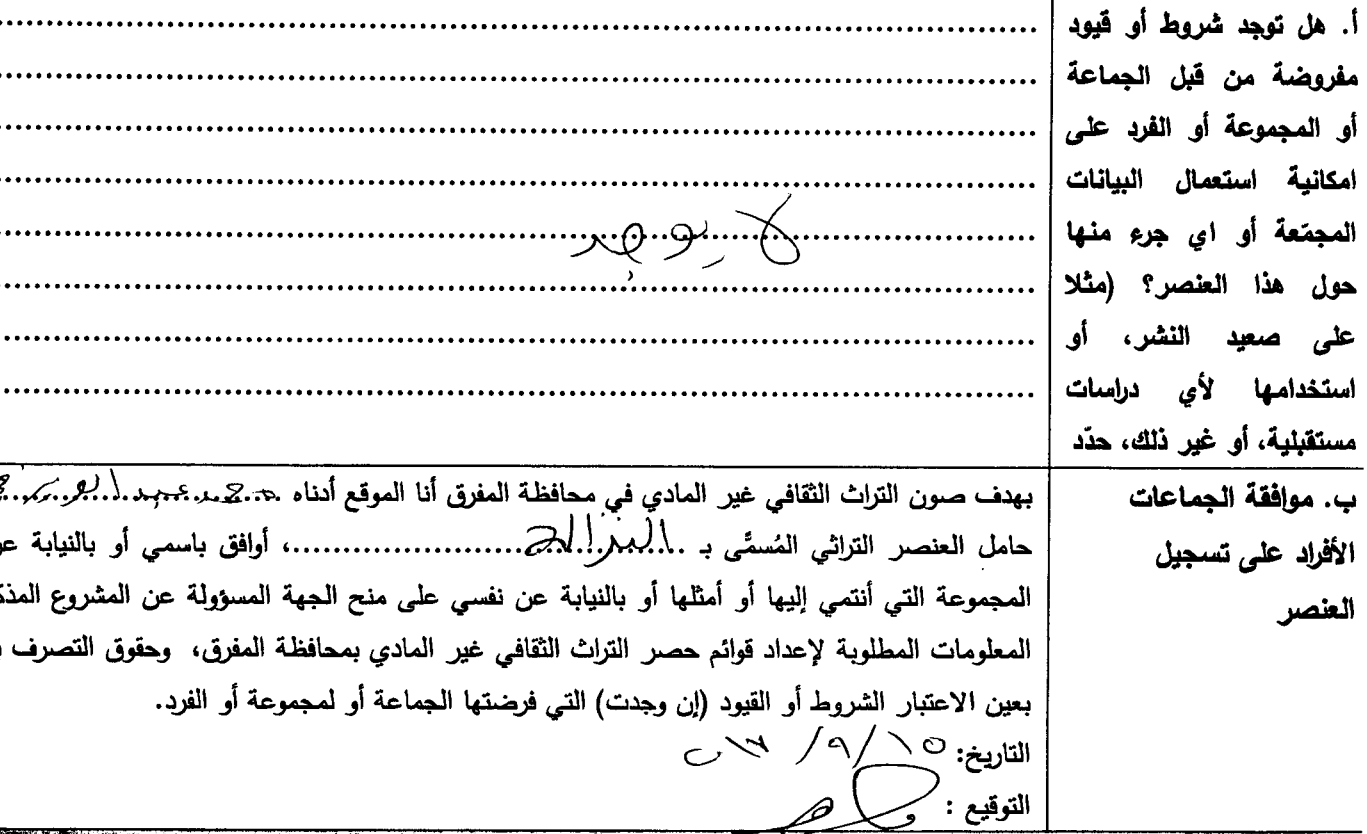 أ. هل توجد شروط أو قيود
مفروضة من قبل الجماعة
أو المجموعة أو الفرد على
امكانية استعمال البيانات
المجمّعة أو اي جرء منها
حول هذا العنصر؟ (مثلا
على صعيد النشر، أو
استخدامها لأي دراسات
مستقبلية، أو غير ذلك، حدّد
لا يوجد
ب. موافقة الجماعات
الأفراد على تسجيل
العنصر
بهدف صون التراث الثقافي غير المادي في محافظة المفرق أنا الموقع أدناه
حامل العنصر التراثي المُسمَّى بـ ........................، أوافق باسمي أو بالنيابة
المجموعة التي أنتمي إليها أو أمثلها أو بالنيابة عن نفسي على منح الجهة المسؤولة عن المشروع
المعلومات المطلوبة لإعداد قوائم حصر التراث الثقافي غير المادي بمحافظة المفرق، وحقوق التصرف
بعين الاعتبار الشروط أو القيود (إن وجدت) التي فرضتها الجماعة أو لمجموعة أو الفرد.
التاريخ: ١٥/ ٩/
التوقيع :